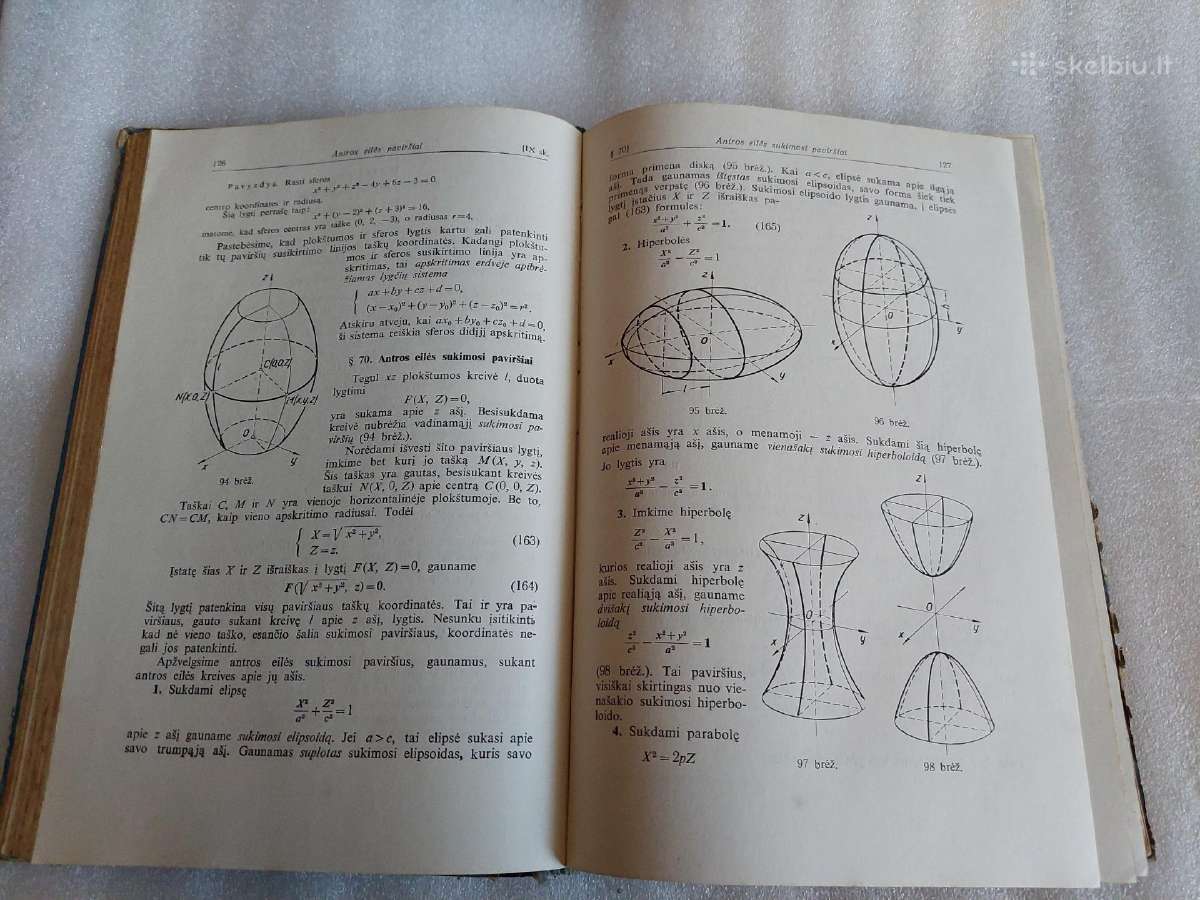 skelbiu.lt
126
Antros eilės paviršiai
[IX sk.
Pavyzdys. Rasti sferos
x² + y² + z² − 4y + 6z − 3 = 0
centro koordinates ir radiusą.
Šią lygtį perrašę taip:
x² + (y − 2)² + (z + 3)² = 16,
matome, kad sferos centras yra taške (0, 2, −3), o radiusas r=4.
Pastebėsime, kad plokštumos ir sferos lygtis kartu gali patenkinti
tik tų paviršių susikirtimo linijos taškų koordinatės. Kadangi plokštu-
mos ir sferos susikirtimo linija yra ap-
skritimas, tai apskritimas erdvėje apibrė-
žiamas lygčių sistema
ax + by + cz + d = 0,
(x − x₀)² + (y − y₀)² + (z − z₀)² = r².
Atskiru atveju, kai ax₀ + by₀ + cz₀ + d = 0,
ši sistema reiškia sferos didįjį apskritimą.
§ 70. Antros eilės sukimosi paviršiai
Tegul xz plokštumos kreivė l, duota
lygtimi
F(X, Z)=0,
yra sukama apie z ašį. Besisukdama
kreivė nubrėžia vadinamąjį sukimosi pa-
viršių (94 brėž.).
Norėdami išvesti šito paviršiaus lygtį,
imkime bet kurį jo tašką M(X, y, z).
Šis taškas yra gautas, besisukant kreivės
taškui N(X, 0, Z) apie centrą C(0, 0, Z).
z
C(0,0,z)
N(X,0,Z)
M(x,y,z)
l
O
x
y
94 brėž.
Taškai C, M ir N yra vienoje horizontalinėje plokštumoje. Be to,
CN=CM, kaip vieno apskritimo radiusai. Todėl
X=√x²+y²,
Z=z.
(163)
Įstatę šias X ir Z išraiškas į lygtį F(X, Z)=0, gauname
F(√x²+y², z)=0.
(164)
Šitą lygtį patenkina visų paviršiaus taškų koordinatės. Tai ir yra pa-
viršiaus, gauto sukant kreivę l apie z ašį, lygtis. Nesunku įsitikinti,
kad nė vieno taško, esančio šalia sukimosi paviršiaus, koordinatės ne-
gali jos patenkinti.
Apžvelgsime antros eilės sukimosi paviršius, gaunamus, sukant
antros eilės kreives apie jų ašis.
1. Sukdami elipsę
X²/a² + Z²/c² = 1
apie z ašį gauname sukimosi elipsoidą. Jei a > c, tai elipsė sukasi apie
savo trumpąją ašį. Gaunamas suplotas sukimosi elipsoidas, kuris savo
§ 70]
Antros eilės sukimosi paviršiai
127
forma primena diską (95 brėž.). Kai a < c, elipsė sukama apie ilgąją
ašį. Tada gaunamas ištęstas sukimosi elipsoidas, savo forma šiek tiek
primenąs verpstę (96 brėž.). Sukimosi elipsoido lygtis gaunama, į elipsės
lygtį įstačius X ir Z išraiškas pa-
gal (163) formules:
x²+y²/a² + z²/c² = 1.
(165)
2. Hiperbolės
X²/a² − Z²/c² = 1
z
O
x
y
l
95 brėž.
z
O
x
y
96 brėž.
realioji ašis yra x ašis, o menamoji – z ašis. Sukdami šią hiperbolę
apie menamąją ašį, gauname vienašakį sukimosi hiperboloidą (97 brėž.).
Jo lygtis yra
x²+y²/a² − z²/c² = 1.
3. Imkime hiperbolę
Z²/c² − X²/a² = 1,
kurios realioji ašis yra z
ašis. Sukdami hiperbolę
apie realiąją ašį, gauname
dvišakį sukimosi hiperbo-
loidą
z²/c² − x²+y²/a² = 1
(98 brėž.). Tai paviršius,
visiškai skirtingas nuo vie-
našakio sukimosi hiperbo-
loido.
4. Sukdami parabolę
X² = 2pZ
z
O
x
y
97 brėž.
z
O
x
y
98 brėž.